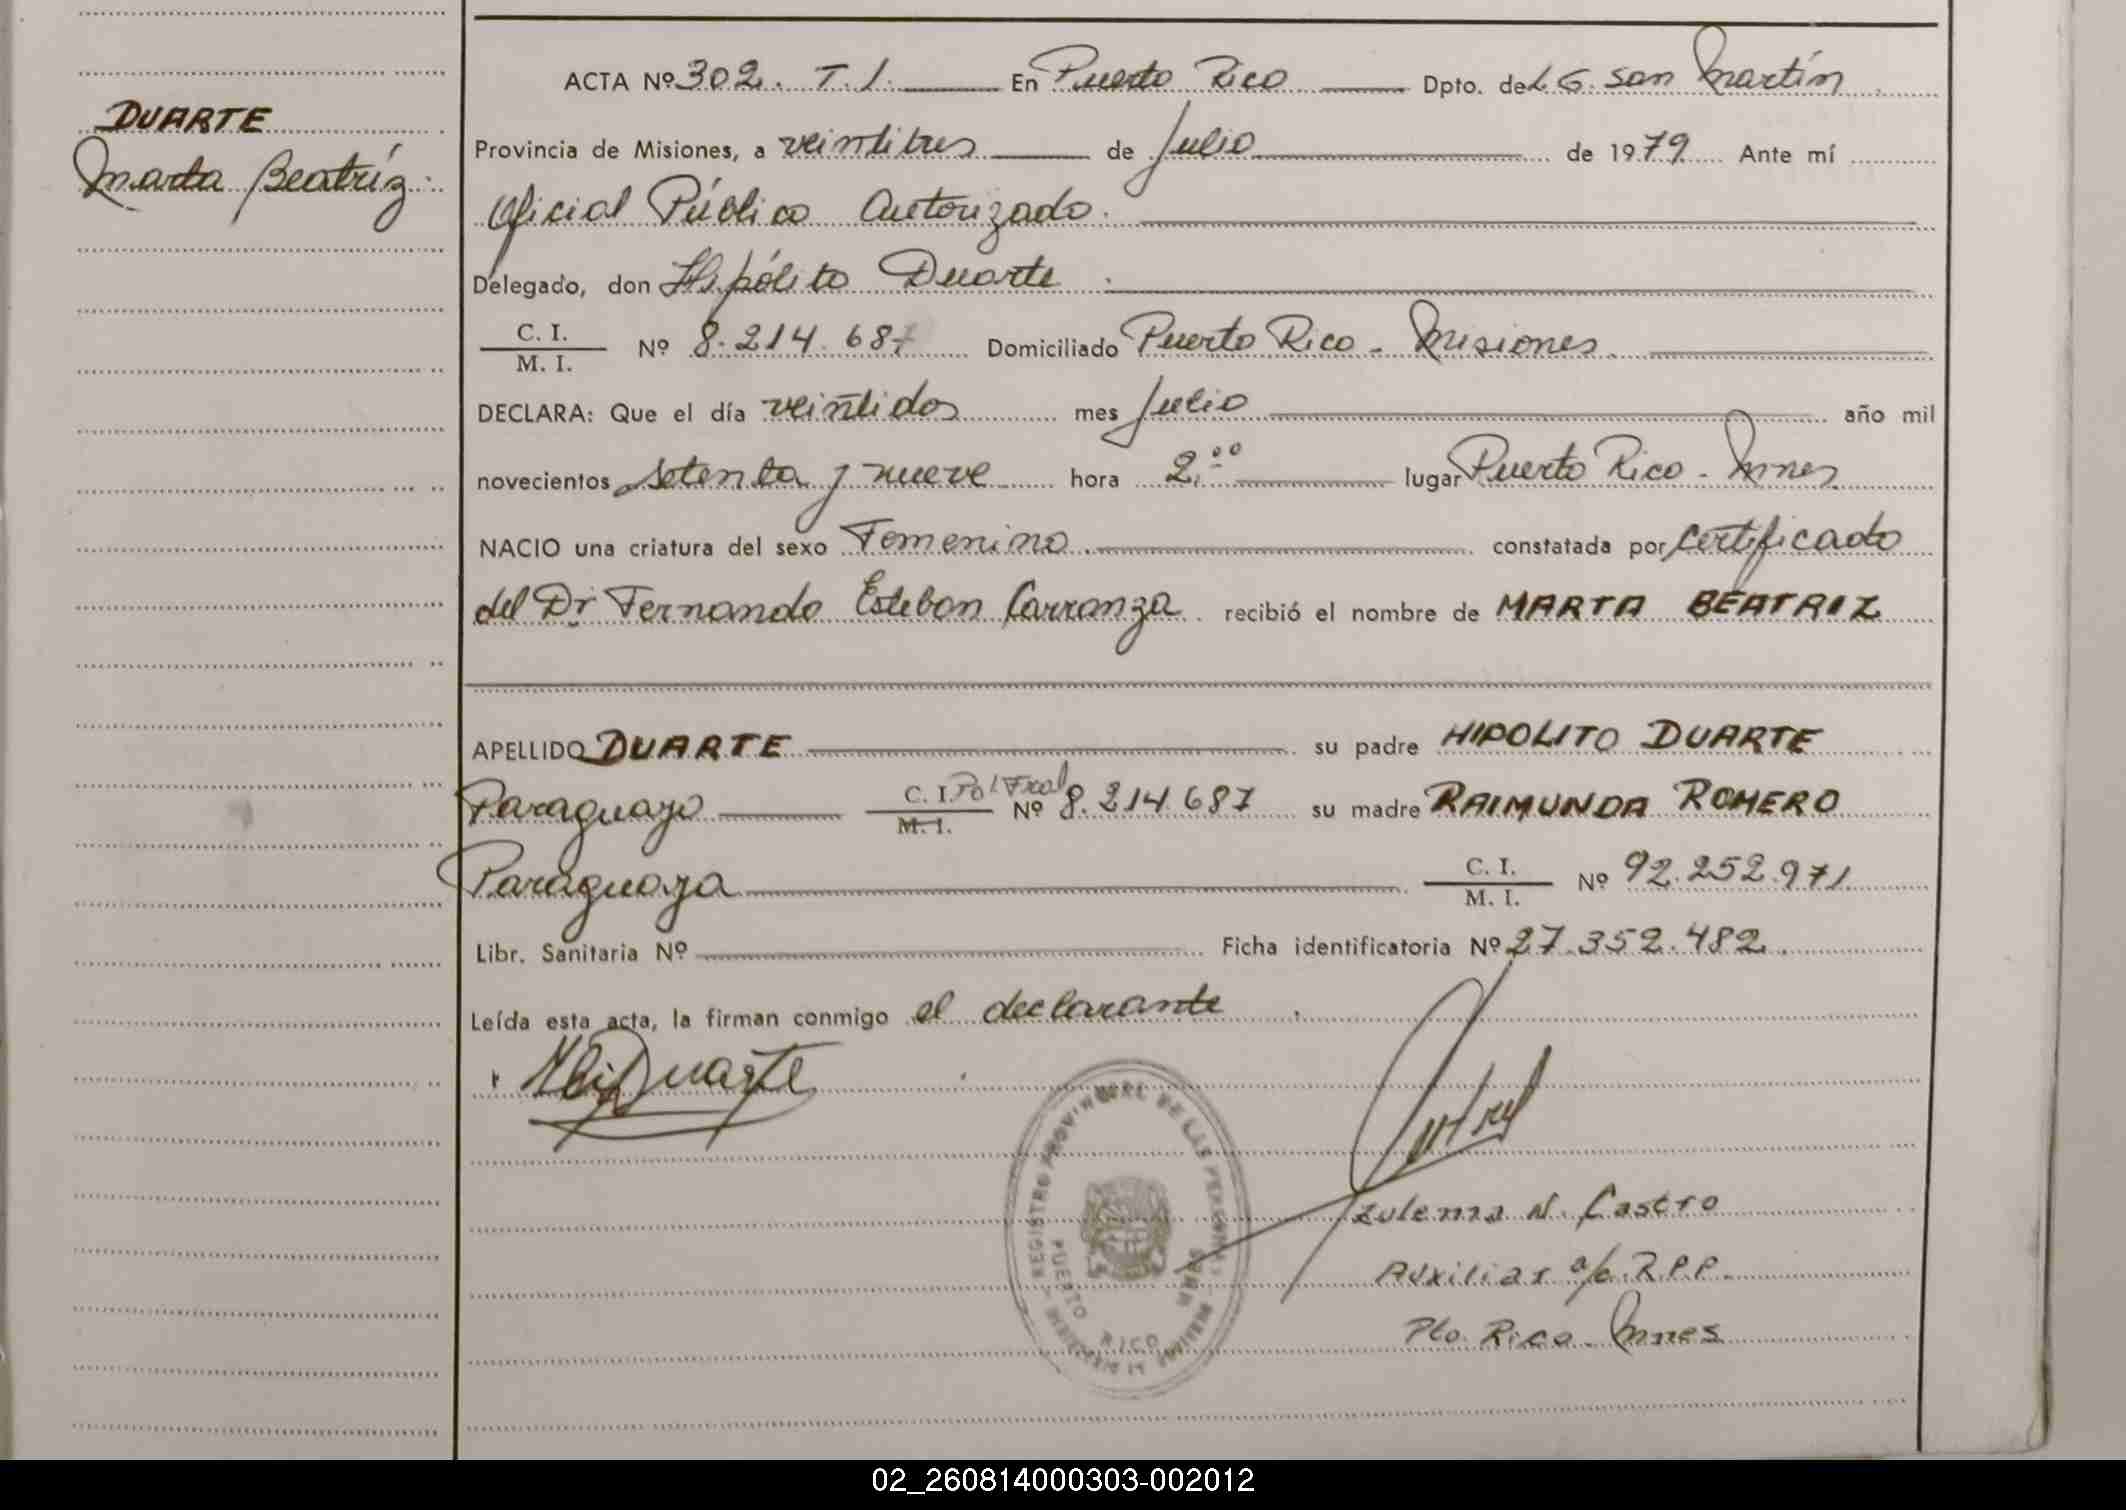 DUARTE
Marta Beatríz.
ACTA Nº 302. T. I. En Puerto Rico Dpto. de L G. San Martín
Provincia de Misiones, a veintitres de Julio de 1979 Ante mí
Oficial Público Autorizado.
Delegado, don Hipólito Duarte
C. I.
M. I. Nº 8.214.687 Domiciliado Puerto Rico - Misiones.
DECLARA: Que el día veintidos mes Julio año mil
novecientos setenta y nueve hora 2.00 lugar Puerto Rico - Mnes
NACIO una criatura del sexo Femenino constatada por certificado
del Dr Fernando Esteban Carranza recibió el nombre de MARTA BEATRIZ
APELLIDO DUARTE su padre HIPOLITO DUARTE
Paraguayo C. I. Pol Fral M. I. Nº 8.214.687 su madre RAIMUNDA ROMERO
Paraguaya C. I. M. I. Nº 92.252.971
Libr. Sanitaria Nº Ficha identificatoria Nº 27.352.482
Leída esta acta, la firman conmigo el declarante
Duarte
REGISTRO PROVINCIAL DE LAS PERSONAS
PUERTO RICO
MISIONES
Zulema N. Castro
Auxiliar a/c R.P.P.
Pto. Rico - Mnes
02_260814000303-002012